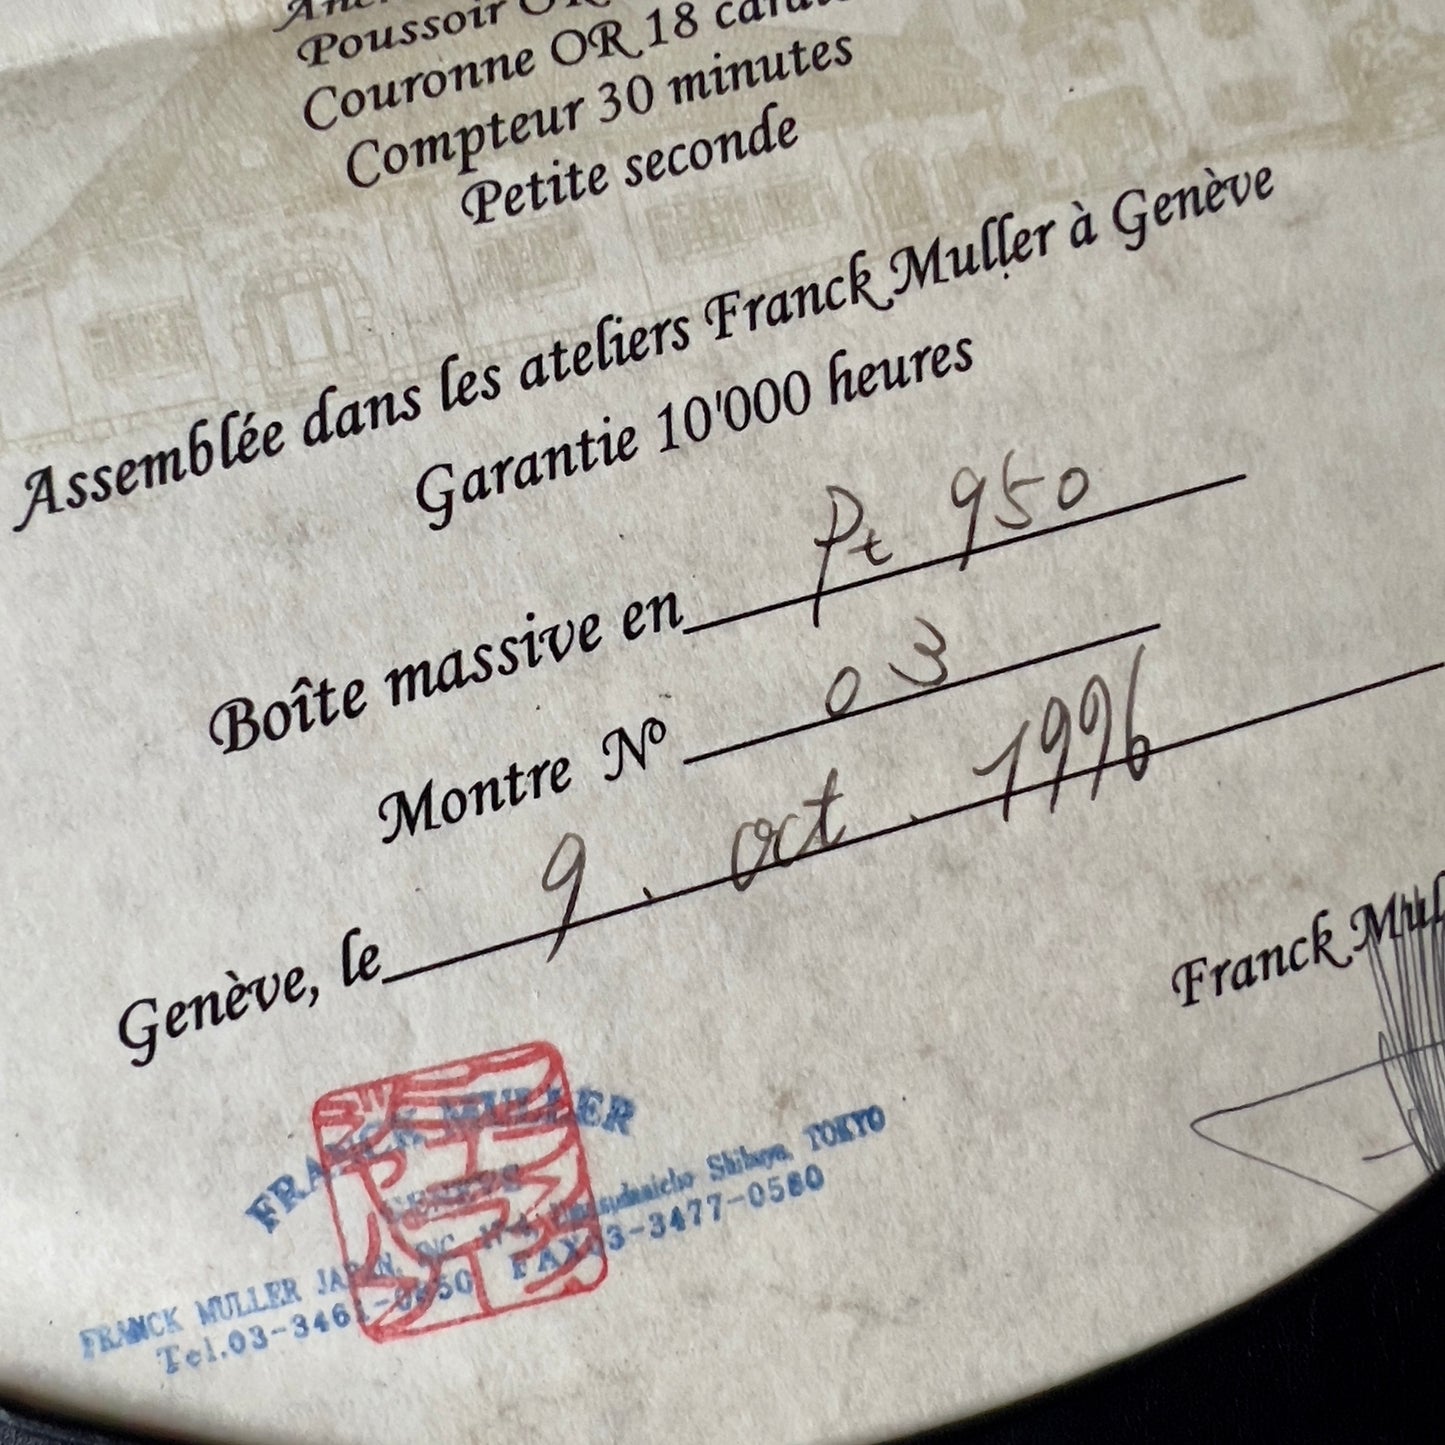 Poussoir OR
Couronne OR 18
Compteur 30 minutes
Petite seconde
Assemblée dans les ateliers Franck Muller à Genève
Garantie 10'000 heures
Boîte massive en Pt 950
Montre Nº 03
Genève, le 9. oct. 1996
Franck
FRANCK MULLER
GENEVE
FRANCK MULLER JAPAN, INC. Shibuya, TOKYO
Tel.03-3461- FAX.03-3477-0580